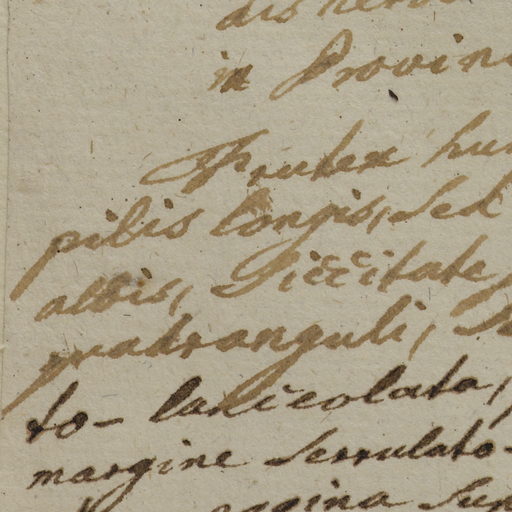 dis
in Provin
Frutex hu
pilis longis, sed
albis, Siccitate
quadranguli,
to-lanceolata,
margine serrulato-
pagina sup